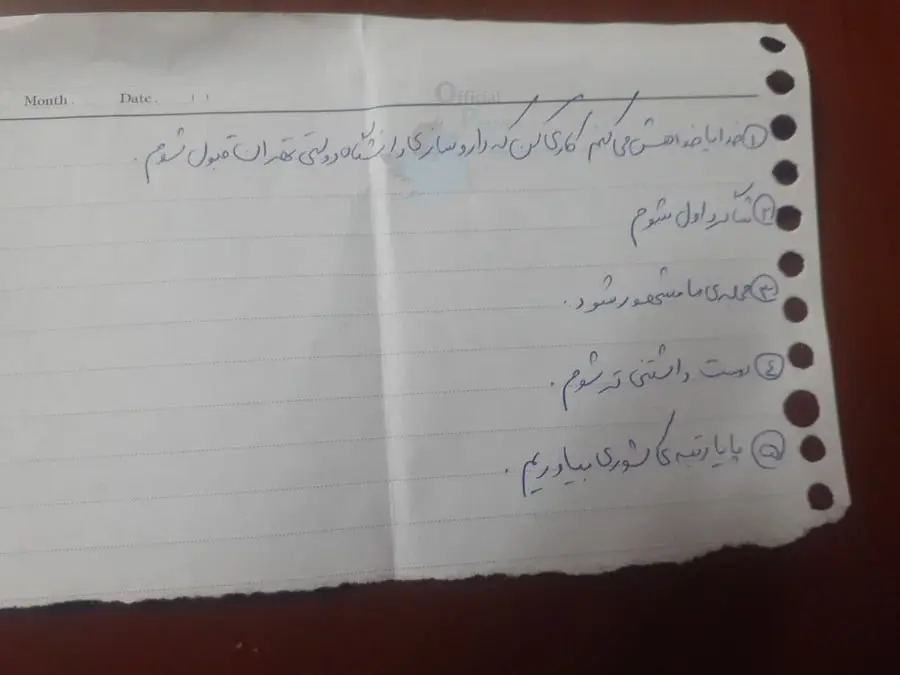 Month. Date. Official
① خدایا خواهش می‌کنم کاری کن که داروسازی دانشگاه دولتی تهران قبول شوم.
② شاگرد اول شوم
③ مجله‌ی ما مشهور شود.
④ دوست داشتنی تر شوم.
⑤ پایا رتبه‌ی کشوری بیاوریم.